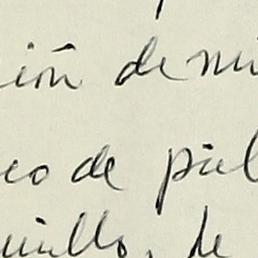 ión de mi
eo de piel
uillo, de